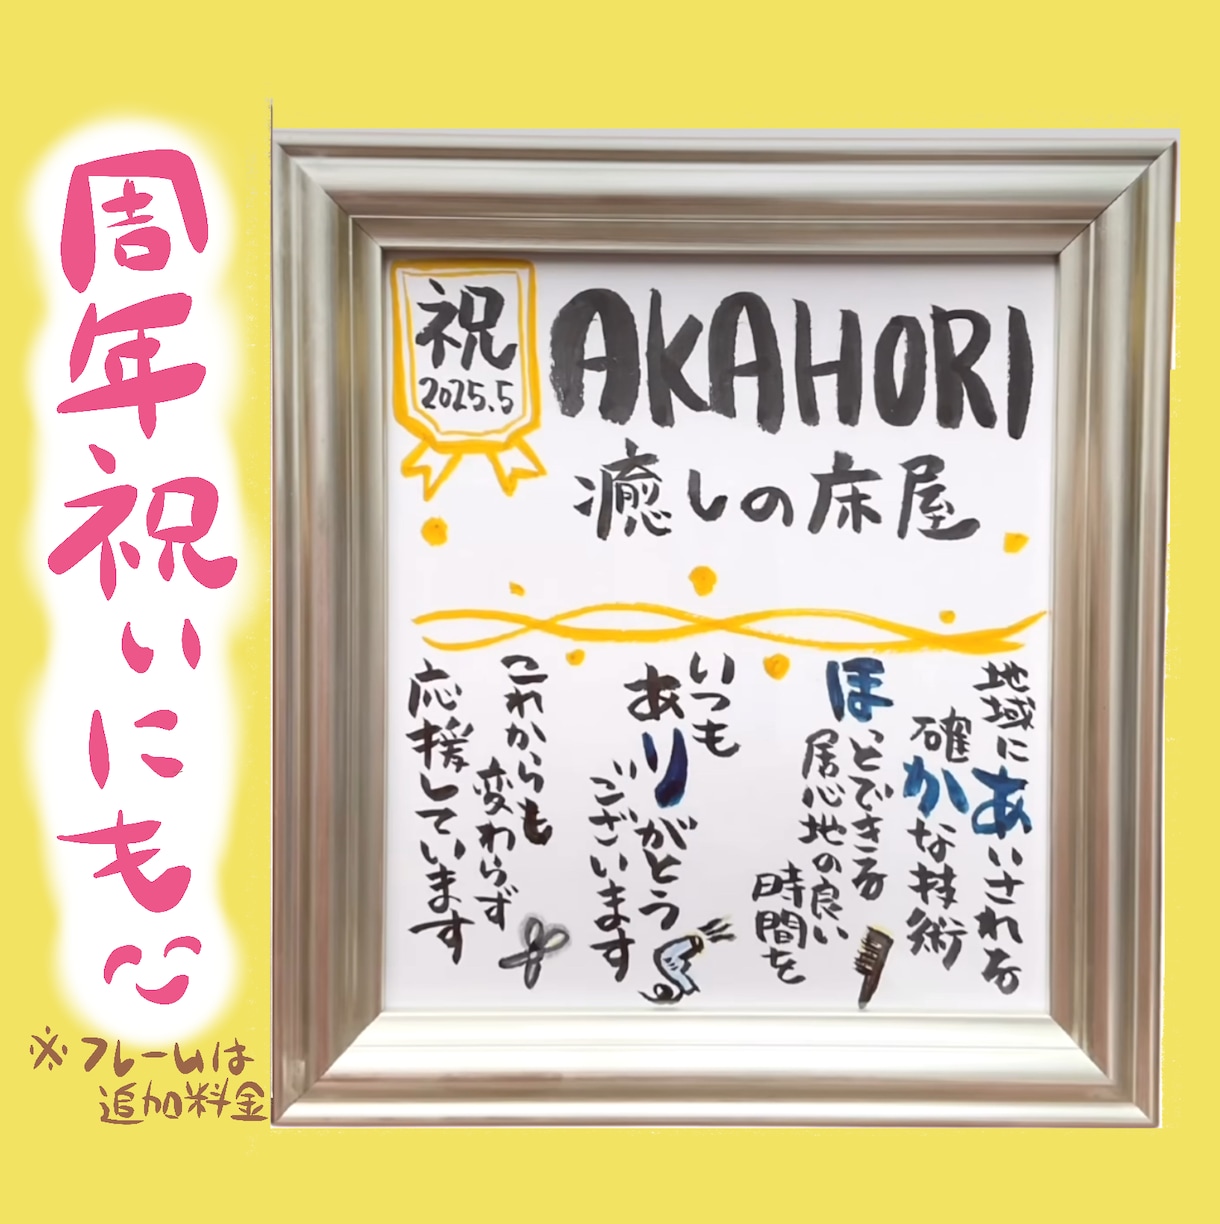 周年祝いにも
※フレームは
追加料金
祝
2025.5
AKAHORI
癒しの床屋
地域にあいされる
確かな技術
ほっとできる
居心地の良い
時間を
いつも
ありがとう
ございます
これからも
変わらず
応援しています